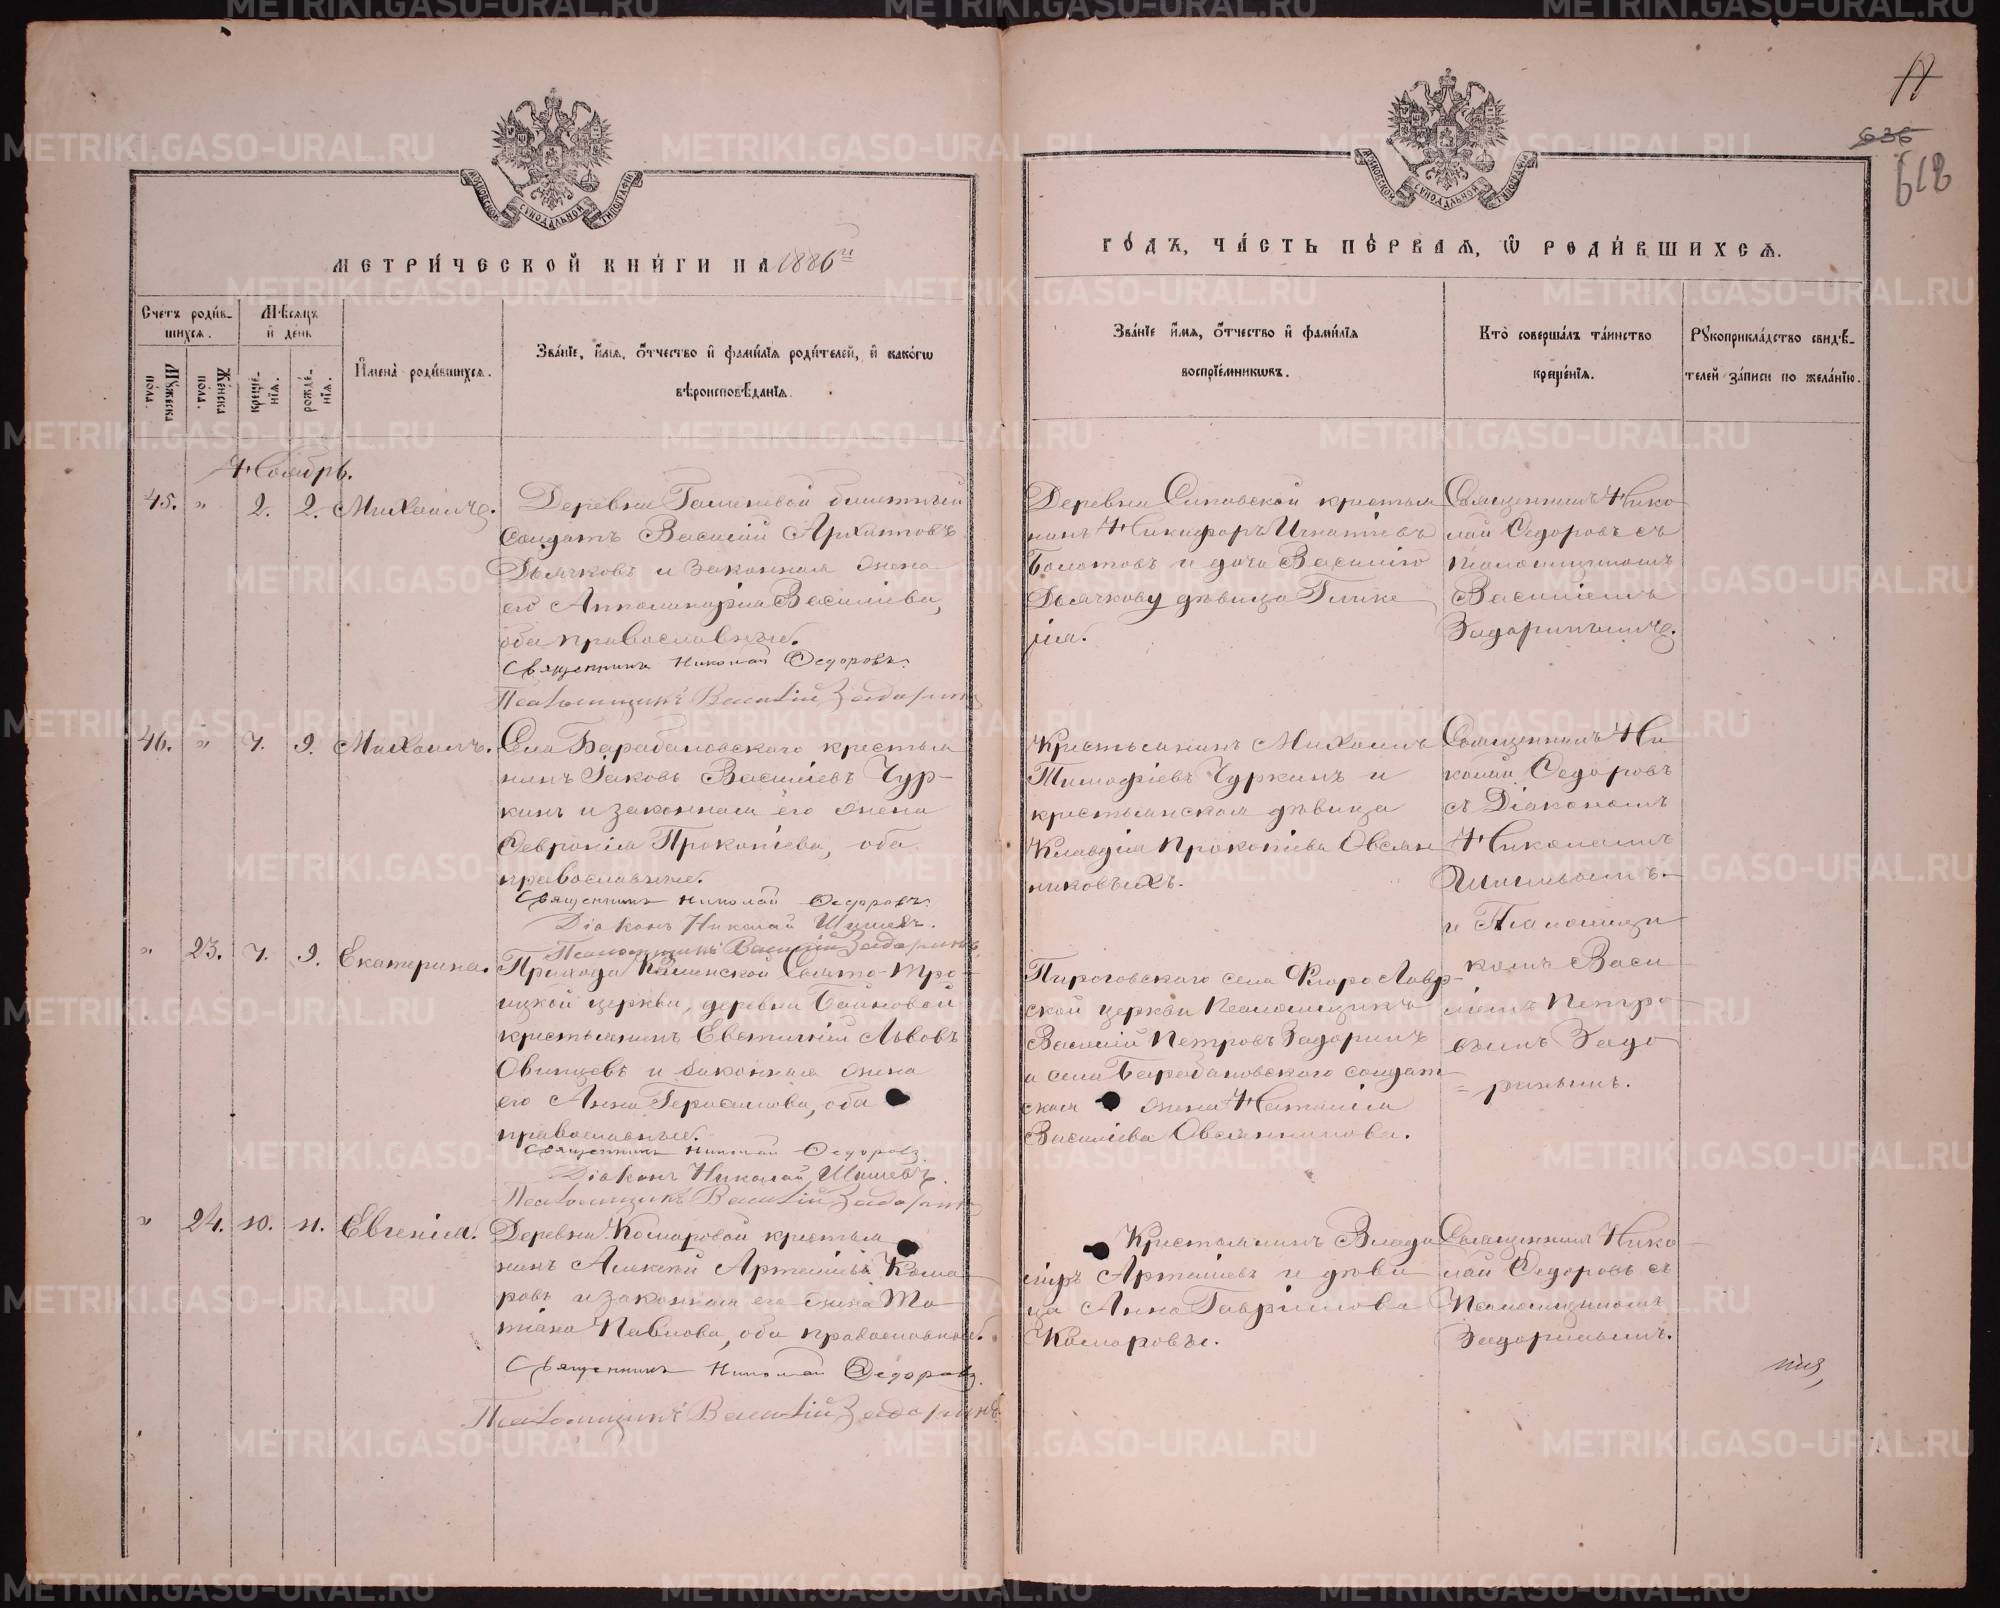 МЕТРИ́ЧЕСКОЙ КНИ́ГИ НА 1886й
Счетъ роди́в-
шихсѧ.
Мѣсѧцъ
и́ де́нь
Мꙋжеска
по́ла.
Же́нска
по́ла.
креще́-
нїѧ.
рожде́-
нїѧ.
И҆мена̀ роди́вшихсѧ.
Зва́нїе, и҆́мѧ, Ѻ҆́тчество и҆ фамилїѧ роди́телей, и҆ како́гѡ
вѣроисповѣ́данїѧ.
Ноябрь.
45. " 2. 2. Михаилъ.
Деревни билетный
солдатъ Василій Архиповъ
Дьячковъ и законная жена
его Апполинарія Васильева,
оба православные.
Священникъ Николай Ѳедоровъ.
Псаломщикъ Василій Задоринъ
46. " 7. 9. Михаилъ.
Села Барабановскаго крестья
нинъ Іаковъ Васильевъ Чур-
кинъ и законная его жена
Февронія Прокопіева, оба
православные.
Священникъ Николай Ѳедоровъ.
Діаконъ Николай Шишевъ.
Псаломщикъ Василій Задоринъ
" 23. 7. 9. Екатерина.
Прихода Каменской Свято-Тро-
ицкой церкви, деревни Байновой
крестьянинъ Евтихій Львовъ
Овинцевъ и законная жена
его Анна Герасимова, оба
православные.
Священникъ Николай Ѳедоровъ.
Діаконъ Николай Шишевъ.
Псаломщикъ Василій Задоринъ
" 24. 10. 11. Евгенія.
Деревни Комаровой крестья
нинъ Алексѣй Артеміевъ Кома
ровъ и законная его жена Та-
тіана Павлова, оба православные.
Священникъ Николай Ѳедоровъ.
Псаломщикъ Василій Задоринъ.
618
ГО́ДЪ, ЧА́СТЬ ПЕ́РВАѦ, Ѽ РОДИ́ВШИХСѦ.
Зва́нїе и҆́мѧ, Ѻ҆́тчество и҆ фами́лїѧ
воспрїе́мникѡвъ.
Кто̀ соверша́лъ та́инство
креще́нїѧ.
Рꙋкоприкла́дство свидѣ́-
телей за́писи по жела́нїю.
Деревни Сипавской крестья
нинъ Никифоръ Игнатіевъ
Болотовъ и дочь Василію
Дьячкову дѣвица Глике
рія.
Священникъ Нико-
лай Ѳедоровъ съ
псаломщикомъ
Василіемъ
Задоринымъ.
Крестьянинъ Михаилъ
Тимофіевъ Чуркинъ и
крестьянская дѣвица
Клавдія Прокопіева Овсян
никовыхъ.
Священникъ Ни
колай Ѳедоровъ
съ Діакономъ
Николаемъ
Шишевымъ.
и Псаломщи
комъ Васи
ліемъ Петро-
вымъ Задо
ринымъ.
Пироговскаго села Флоро Лавр-
ской церкви Псаломщикъ
Василій Петровъ Задоринъ
и села Барабановскаго солдат-
ская жена Наталія
Василіева Овсянникова.
Крестьянинъ Влади
міръ Артеміевъ и дѣви
ца Анна Гаврілова
Комаровы.
Священникъ Нико
лай Ѳедоровъ съ
Псаломщикомъ
Задоринымъ.
METRIKI.GASO-URAL.RU